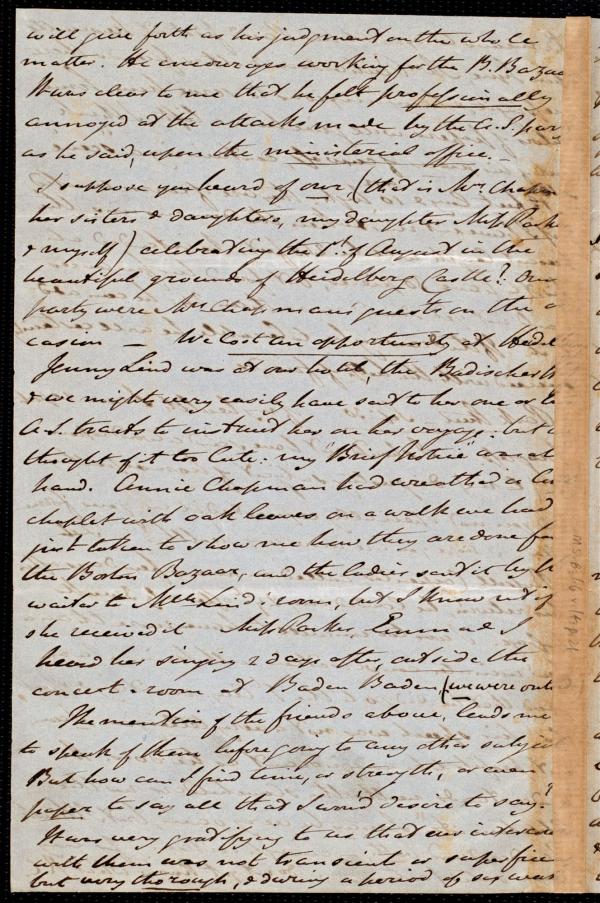 will give forth as his judgment on the whole
matter. He encourages working for the B. Bazaa
It was clear to me that he felt professionally
annoyed at the attacks made by the A. S. par
as he said, upon the ministerial office. –
I suppose you heard of our, (that is Mrs. Chap
her sisters & daughters, my daughter Miss Park
& myself) celebrating the 1st. of August in the
beautiful grounds of Heidelberg Castle? Our
party were Mrs. Chapman's guests on the o
casion — We lost an opportunity at Heidel
Jenny Lind was at our hotel, the Badischer H
& we might very easily have sent to her one or t
A. S. tracts to instruct her on her voyage: but
thought of it too late: my "Brief Notice" was at
hand. Annie Chapman had wreathed a
chaplet with oak leaves on a walk we had
just taken to show me how they are done for
the Boston Bazaar, and the ladies sent it by th
waiter to Mlle Lind's room, but I know not if
she received it Miss Parker, Emma & I
heard her singing 2 days after, outside the
concert-room at Baden Baden (we were outs
The mention of the friends above, leads me
to speak of them before going to any other subje
But how can I find time, or strength, or even
paper to say all that I would desire to say?
It was very gratifying to us that our interco
with them was not transient or superficia
but very thorough, & during a period of six wee